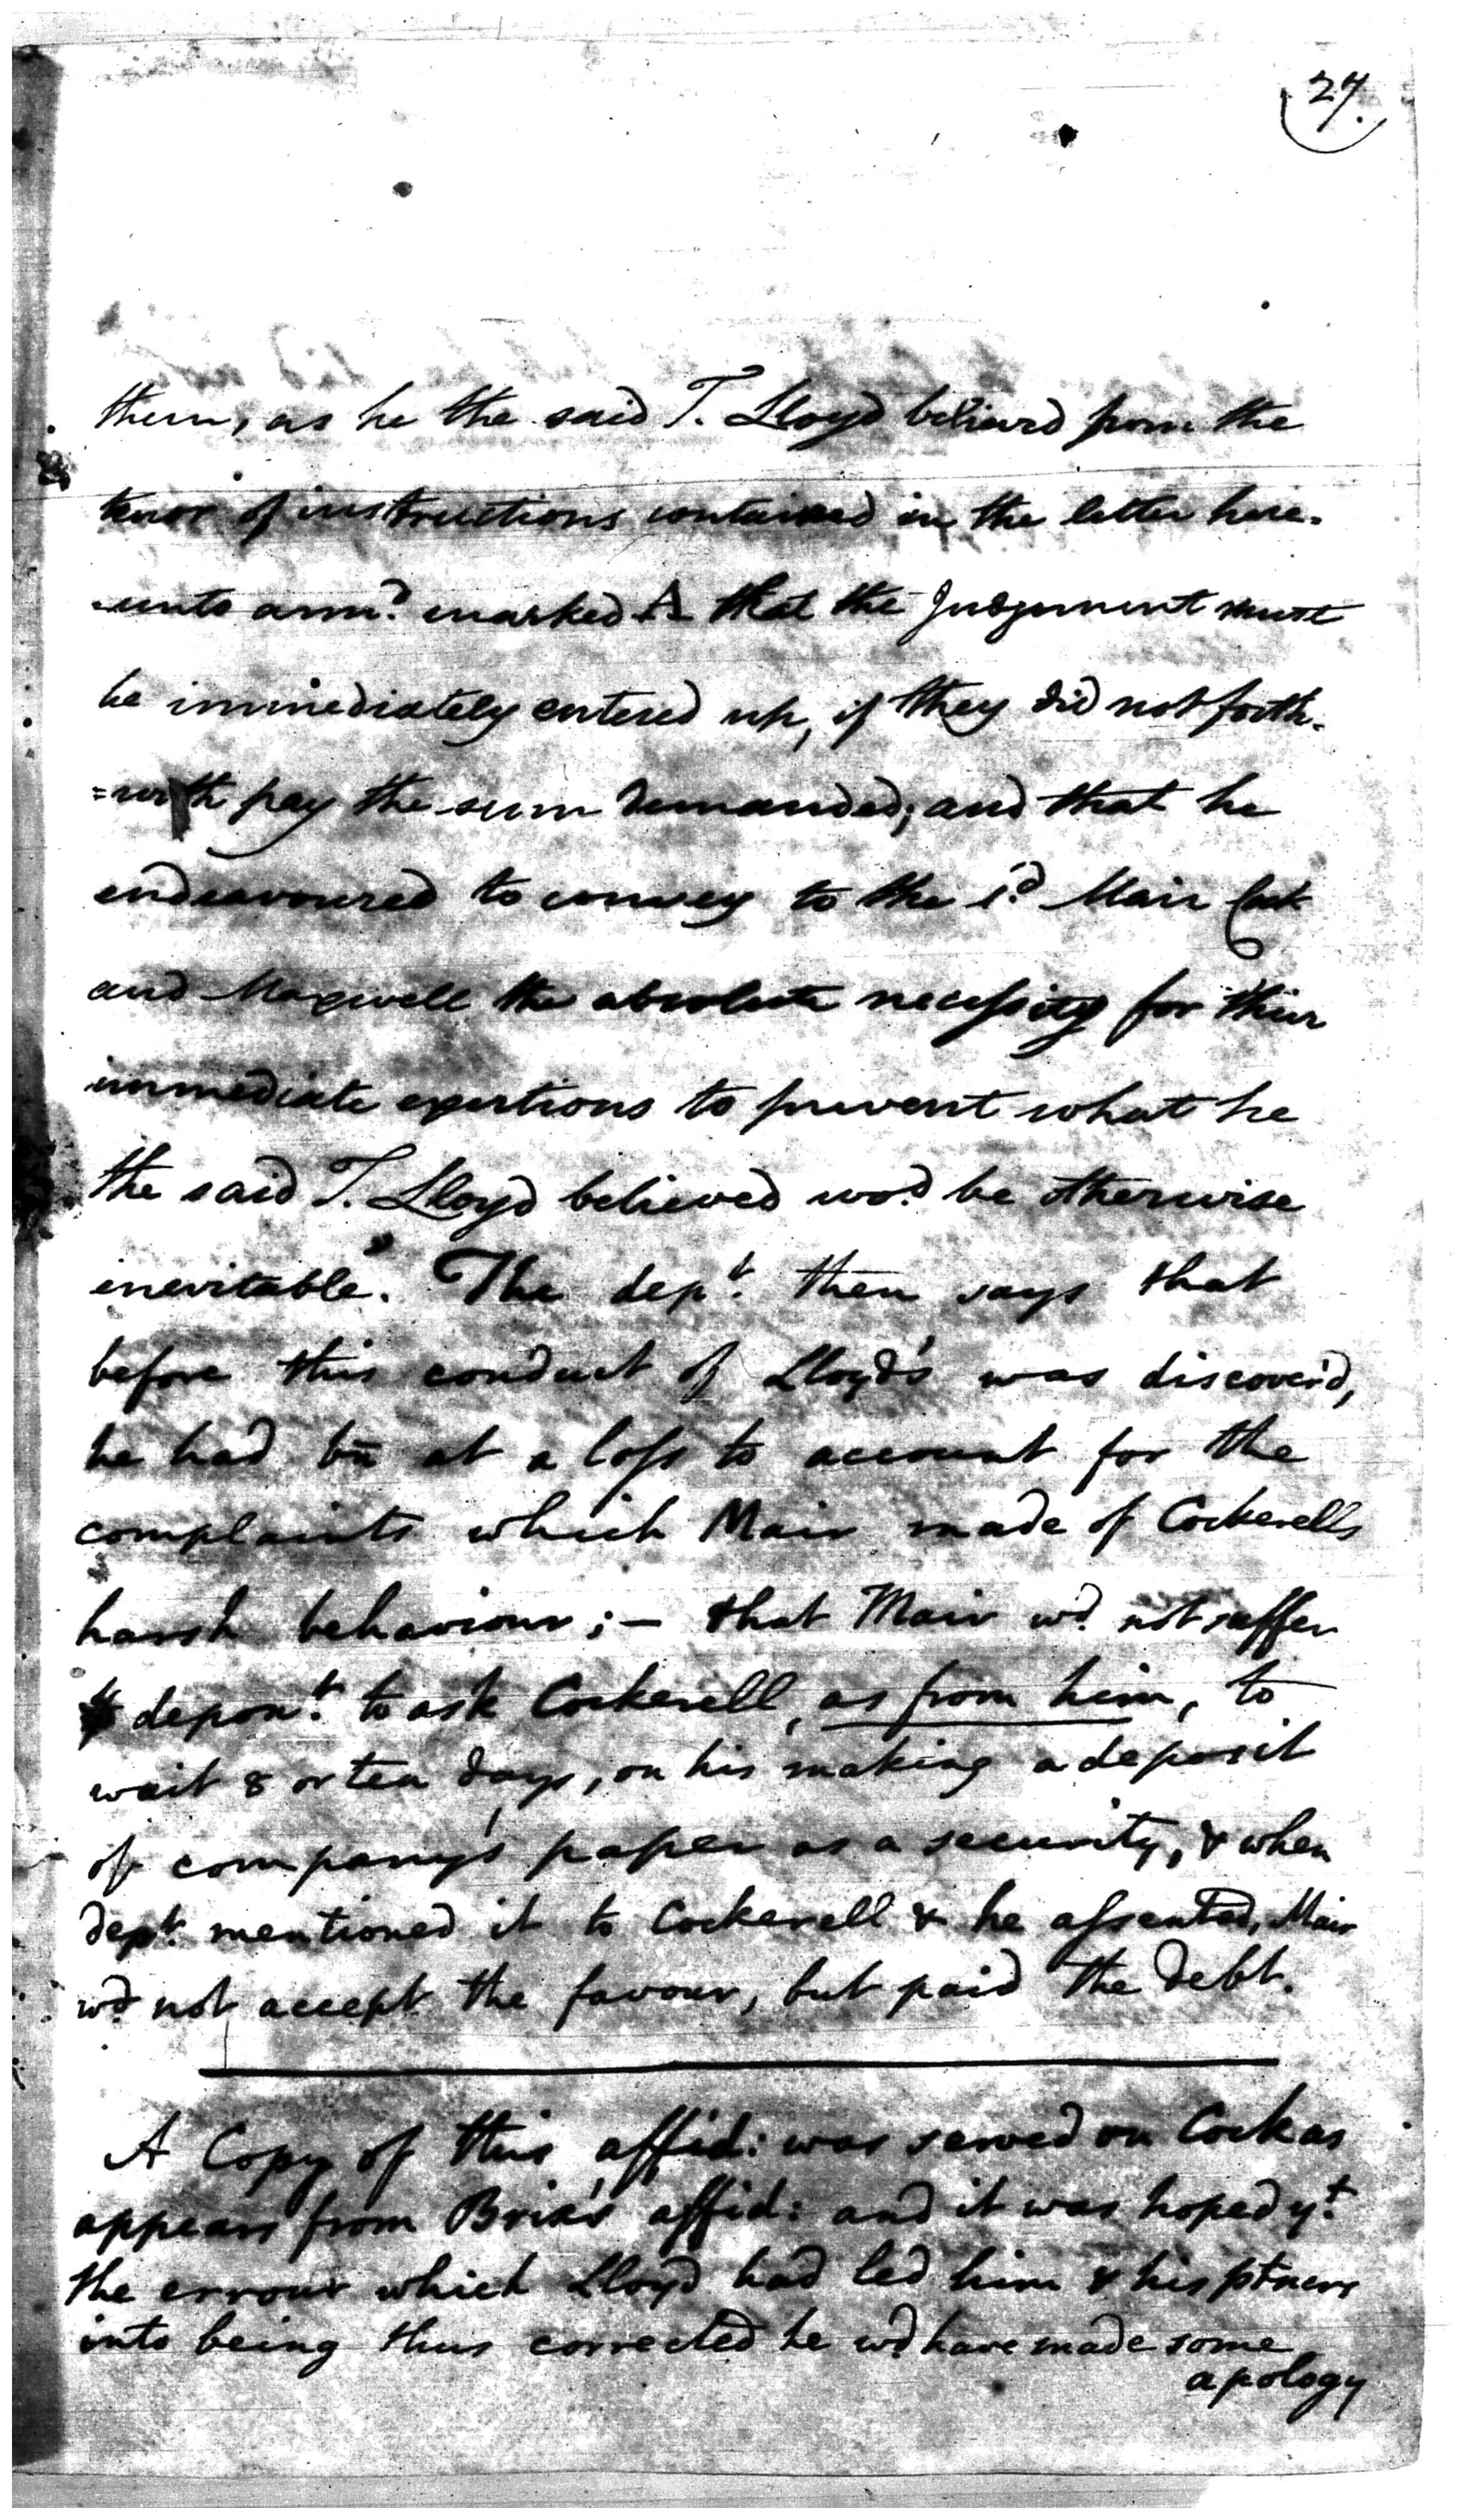 27.
them, as he the said T. Lloyd believed from the
tenor of instructions contained in the letter here-
-unto ann.d marked A that the Judgement must
be immediately entered up, if they did not forth-
=with pay the sum demanded; and that he
endeavoured to convey to the s.d Mair Cock
and Maxwell the absolute necessity for their
immediate exertions to prevent what he
the said T. Lloyd believed wo.d be otherwise
inevitable." The dep.t then says that
before this conduct of Lloyd's was discover'd,
he had bn at a loss to account for the
complaints which Mair made of Cockerells
harsh behaviour; – that Mair w.d not suffer
depon.t to ask Cockerell, as from him, to
wait 8 or ten days, on his making a deposit
of company's paper as a security, & when
dep.t mentioned it to Cockerell & he assented, Mair
w.d not accept the favour, but paid the debt.
A Copy of this affid: was served on Cock as
appears from affid: and it was hoped y.t
the errour which Lloyd had led him & his ptners
into being thus corrected he w.d have made some
apology